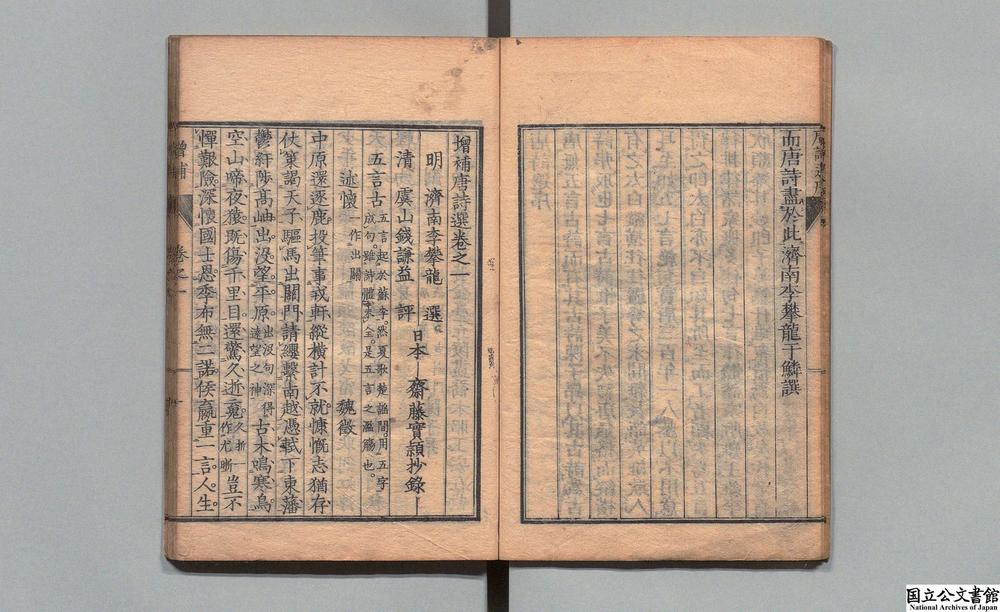 而唐詩盡於此濟南李攀龍于鱗譔
增補唐詩選卷之一
明 濟南李攀龍 選
清 虞山錢謙益 評
日本 齋藤實頴抄錄
五言古 五言起於蘇李然夏歌楚謳間用五字
成句雖詩體未全是五言之濫觴也
述懷 一作出關 魏徵
中原還逐鹿投筆事戎軒縱橫計不就慷慨志猶存
仗策謁天子驅馬出關門請纓繫南越憑軾下東藩
鬱紆陟高岫出沒望平原 出沒句深得遠望之神 古木鳴寒鳥
空山啼夜猨旣傷千里目還驚久逝䰟 久逝一作九逝 豈不
憚艱險深懷國士恩季布無二諾侯嬴重一言人生
增補
卷之一
国立公文書館
National Archives of Japan